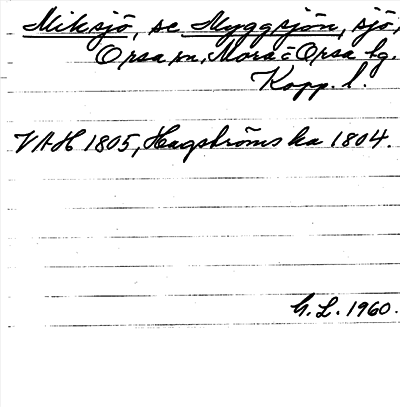 Miksjö, se Myggsjön, sjö,
Orsa sn, Mora o Orsa hg.
Kopp. l.
VAH 1805, Hagströms ka 1804.
G. L. 1960.